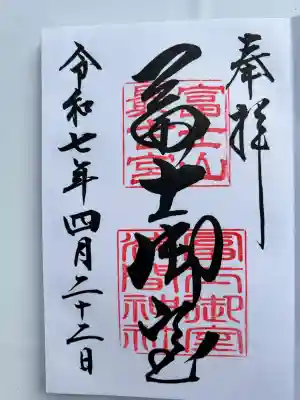 奉拝
冨士山
最古宮
冨士御室
冨士御室
浅間神社
令和七年四月二十二日